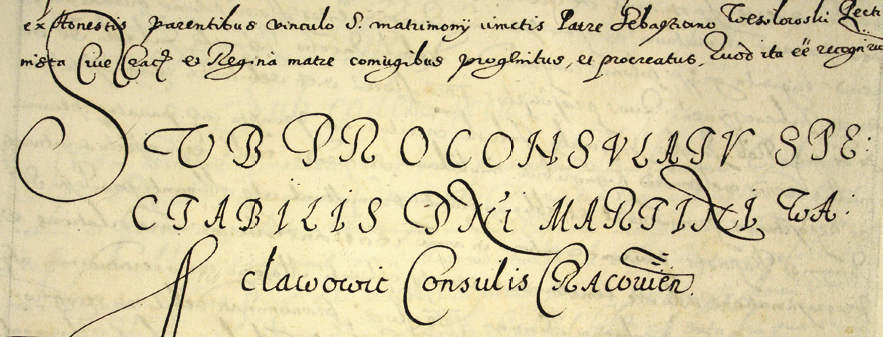 ex Honestis parentibus vinculo S. matrimonij iunctis Patre Sebastiano
Cive Crac. et Regina matre coniugibus progenitus, et procreatus, Quod ita eē
SUB PROCONSVLATV SPE:
CTABILIS DNI MARTINI WA:
cławowic Consulis CRAcovien.